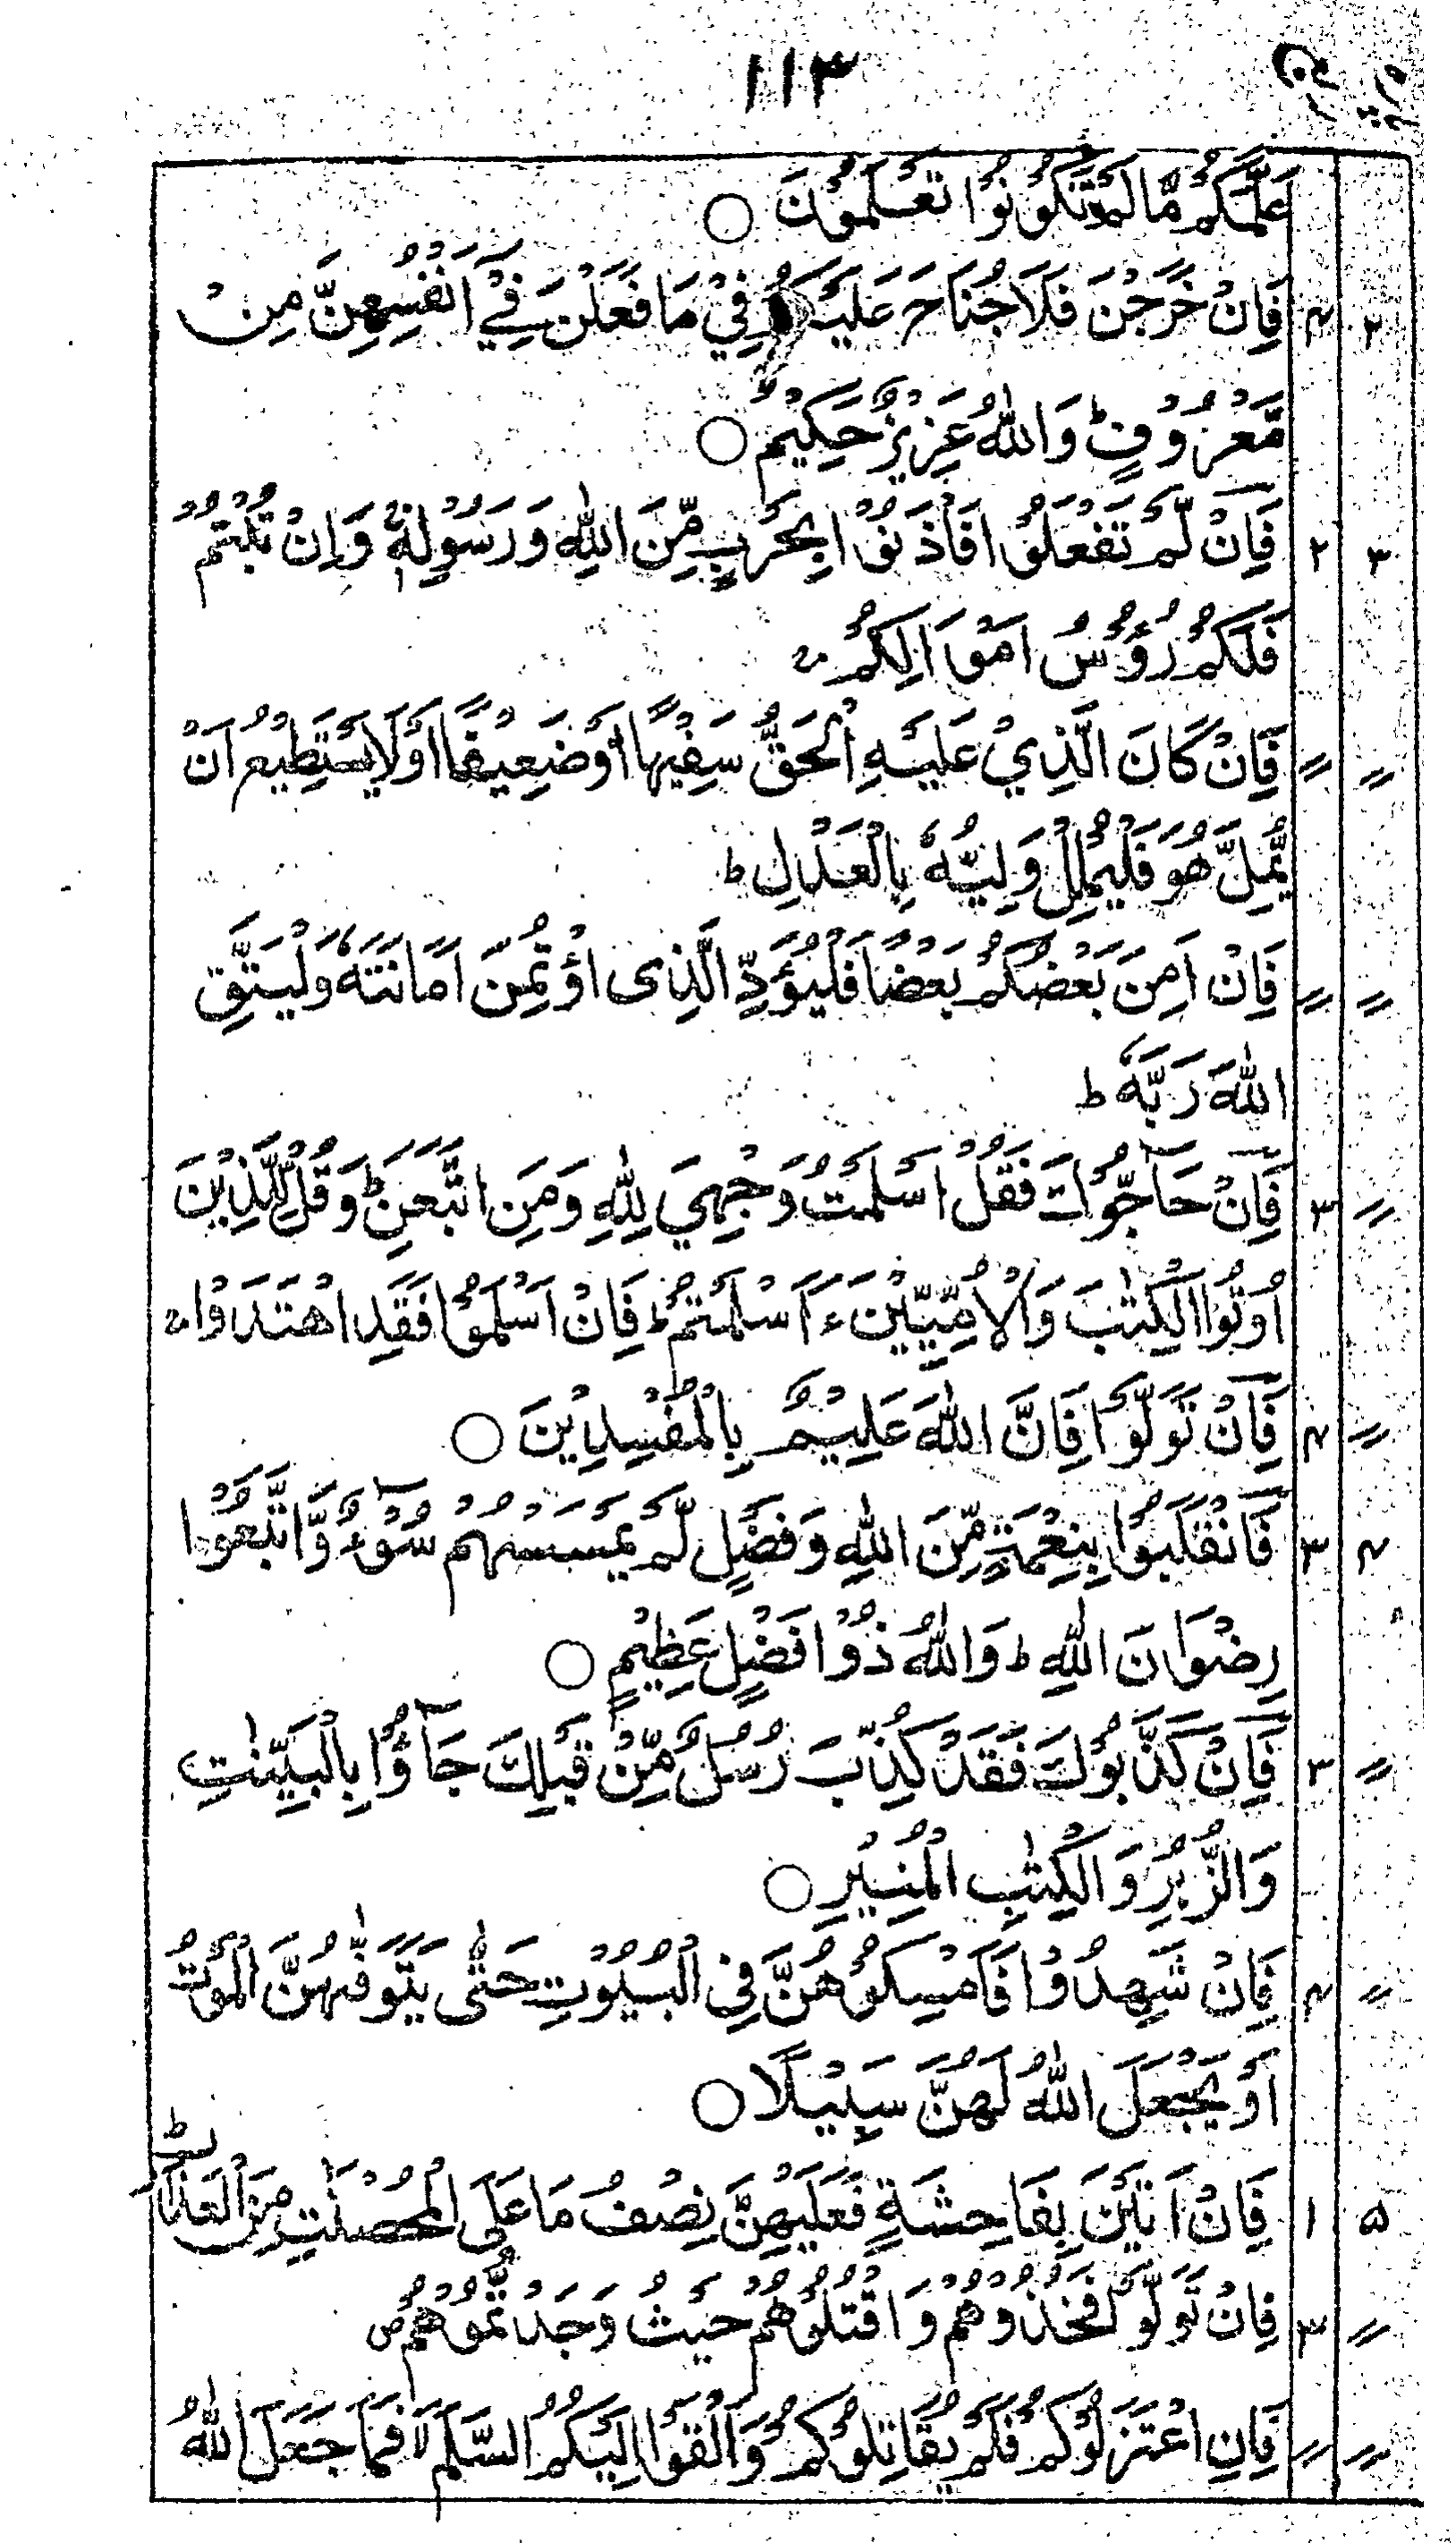 ۱۱۳
پارہ
عَلَّمَكُمْ مَّا لَمْ تَكُوْنُوْا تَعْلَمُوْنَ ○
۲ ۴ فَاِنْ خَرَجْنَ فَلَا جُنَاحَ عَلَيْكُمْ فِيْ مَا فَعَلْنَ فِيْ اَنْفُسِهِنَّ مِنْ
مَّعْرُوْفٍ ط وَاللّٰهُ عَزِيْزٌ حَكِيْمٌ ○
۳ ۲ فَاِنْ لَّمْ تَفْعَلُوْا فَاْذَنُوْا بِحَرْبٍ مِّنَ اللّٰهِ وَرَسُوْلِهٖ وَاِنْ تُبْتُمْ
فَلَكُمْ رُءُوْسُ اَمْوَالِكُمْ
〃 〃 فَاِنْ كَانَ الَّذِيْ عَلَيْهِ الْحَقُّ سَفِيْهًا اَوْ ضَعِيْفًا اَوْ لَا يَسْتَطِيْعُ اَنْ
يُّمِلَّ هُوَ فَلْيُمْلِلْ وَلِيُّهٗ بِالْعَدْلِ ط
〃 〃 فَاِنْ اَمِنَ بَعْضُكُمْ بَعْضًا فَلْيُؤَدِّ الَّذِى اؤْتُمِنَ اَمَانَتَهٗ وَلْيَتَّقِ
اللّٰهَ رَبَّهٗ ط
〃 ۳ فَاِنْ حَآجُّوْكَ فَقُلْ اَسْلَمْتُ وَجْهِيَ لِلّٰهِ وَمَنِ اتَّبَعَنِ ط وَقُلْ لِّلَّذِيْنَ
اُوْتُوا الْكِتٰبَ وَالْاُمِّيّٖنَ ءَاَسْلَمْتُمْ ط فَاِنْ اَسْلَمُوْا فَقَدِ اهْتَدَوْا
〃 ۴ فَاِنْ تَوَلَّوْا فَاِنَّ اللّٰهَ عَلِيْمٌ بِالْمُفْسِدِيْنَ ○
۴ ۳ فَانْقَلَبُوْا بِنِعْمَةٍ مِّنَ اللّٰهِ وَفَضْلٍ لَّمْ يَمْسَسْهُمْ سُوْٓءٌ وَّاتَّبَعُوْا
رِضْوَانَ اللّٰهِ ط وَاللّٰهُ ذُوْا فَضْلٍ عَظِيْمٍ ○
〃 ۳ فَاِنْ كَذَّبُوْكَ فَقَدْ كُذِّبَ رُسُلٌ مِّنْ قَبْلِكَ جَآؤُا بِالْبَيِّنٰتِ
وَالزُّبُرِ وَالْكِتٰبِ الْمُنِيْرِ ○
〃 ۴ فَاِنْ شَهِدُوْا فَاَمْسِكُوْهُنَّ فِى الْبُيُوْتِ حَتّٰى يَتَوَفّٰهُنَّ الْمَوْتُ
اَوْ يَجْعَلَ اللّٰهُ لَهُنَّ سَبِيْلًا ○
۵ ۱ فَاِنْ اَتَيْنَ بِفَاحِشَةٍ فَعَلَيْهِنَّ نِصْفُ مَا عَلَى الْمُحْصَنٰتِ مِنَ الْعَذَابِ ط
〃 ۳ فَاِنْ تَوَلَّوْا فَخُذُوْهُمْ وَاقْتُلُوْهُمْ حَيْثُ وَجَدْتُّمُوْهُمْ ص
〃 〃 فَاِنِ اعْتَزَلُوْكُمْ فَلَمْ يُقَاتِلُوْكُمْ وَاَلْقَوْا اِلَيْكُمُ السَّلَمَ لا فَمَا جَعَلَ اللّٰهُ